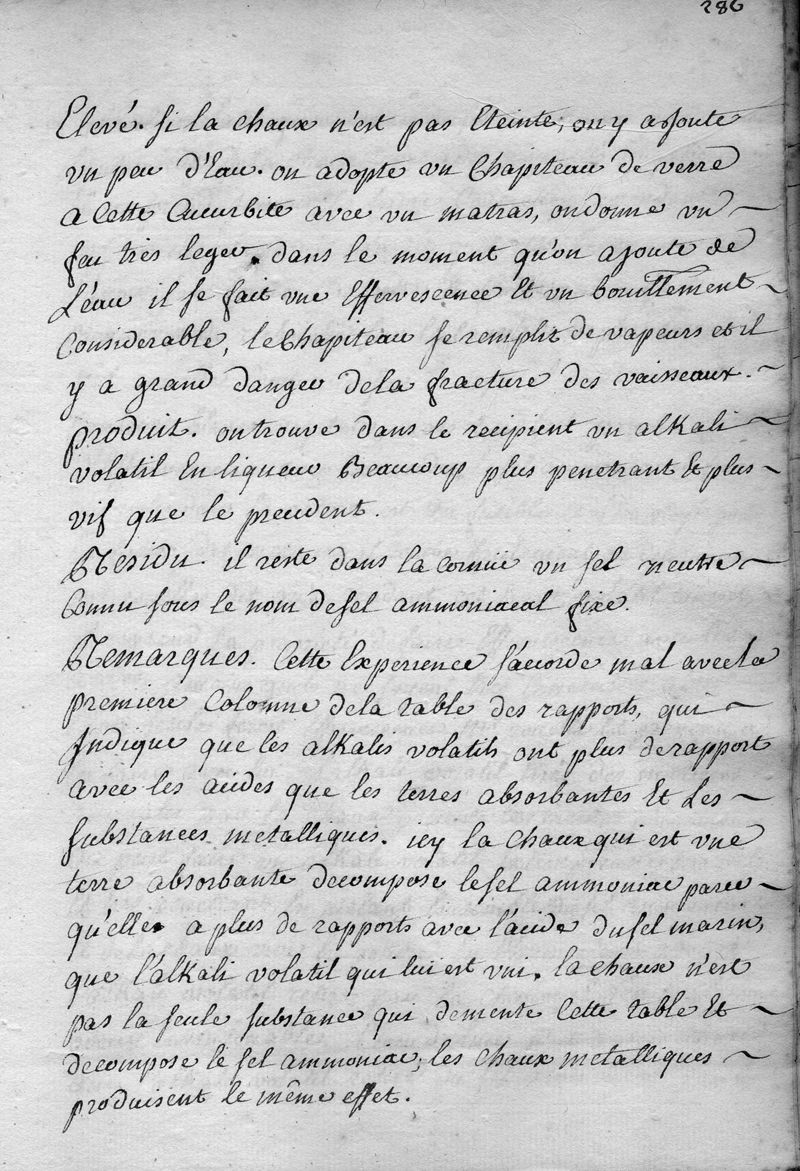 286
Elevé. si la chaux n'est pas Eteinte, on y ajoute
un peu d'Eau. on adopte un Chapiteau de verre
a Cette Cucurbite avec un matras, on donne un
feu très leger. dans le moment qu'on ajoute de
L'éau il se fait une Effervescence Et un bouillement
Considerable, le Chapiteau se remplit de vapeurs et il
y a grand danger de la fracture des vaisseaux.
produit. on trouve dans le recipient un alkali
volatil En liqueur Beaucoup plus penetrant Et plus
vif que le precedent.
Residu. il reste dans la cornüe un sel neutre
Connu sous le nom de sel ammoniacal fixe.
Remarques. Cette Experience s'accorde mal avec la
premiere Colomne de la table des rapports, qui
Indique que les alkalis volatils ont plus de rapport
avec les acides que les terres absorbantes Et Les
substances metalliques. icy la Chaux qui est une
terre absorbante decompose le sel ammoniac parce
qu'elle a plus de rapports avec l'acide du sel marin,
que l'alkali volatil qui lui est uni. la chaux n'est
pas la seule substance qui demente Cette table Et
decompose le sel ammoniac; les chaux metalliques
produisent le même effet.